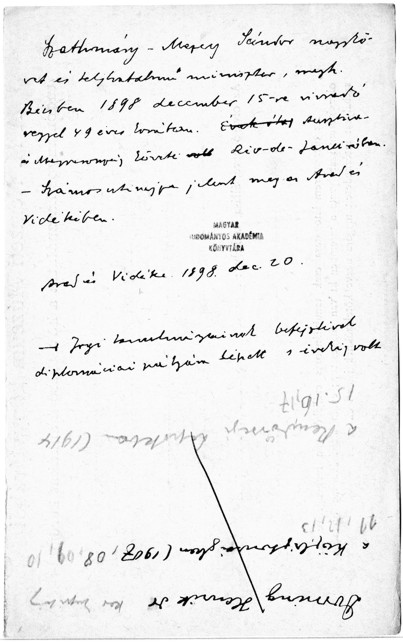 Szathmáry – Mepey Sándor nagykö-
vet és teljhatalmú miniszter, megh.
Bécsben 1898 december 15-re virradó
reggel 49 éves korában. Évek óta Ausztria-
és Magyarország követe volt Rio-de-Janeiróban.
– Számos utirajza jelent meg az Arad és
Vidékében.
MAGYAR
TUDOMÁNYOS AKADÉMIA
KÖNYVTÁRA
Arad és Vidéke. 1898. dec. 20.
→ Jogi tanulmányainak befejeztével
diplomáciai pályára lépett s évekig volt
15. 16, 17
a (1914
11, 12, 13
a (1907, 08, 09, 10
Henrik dr